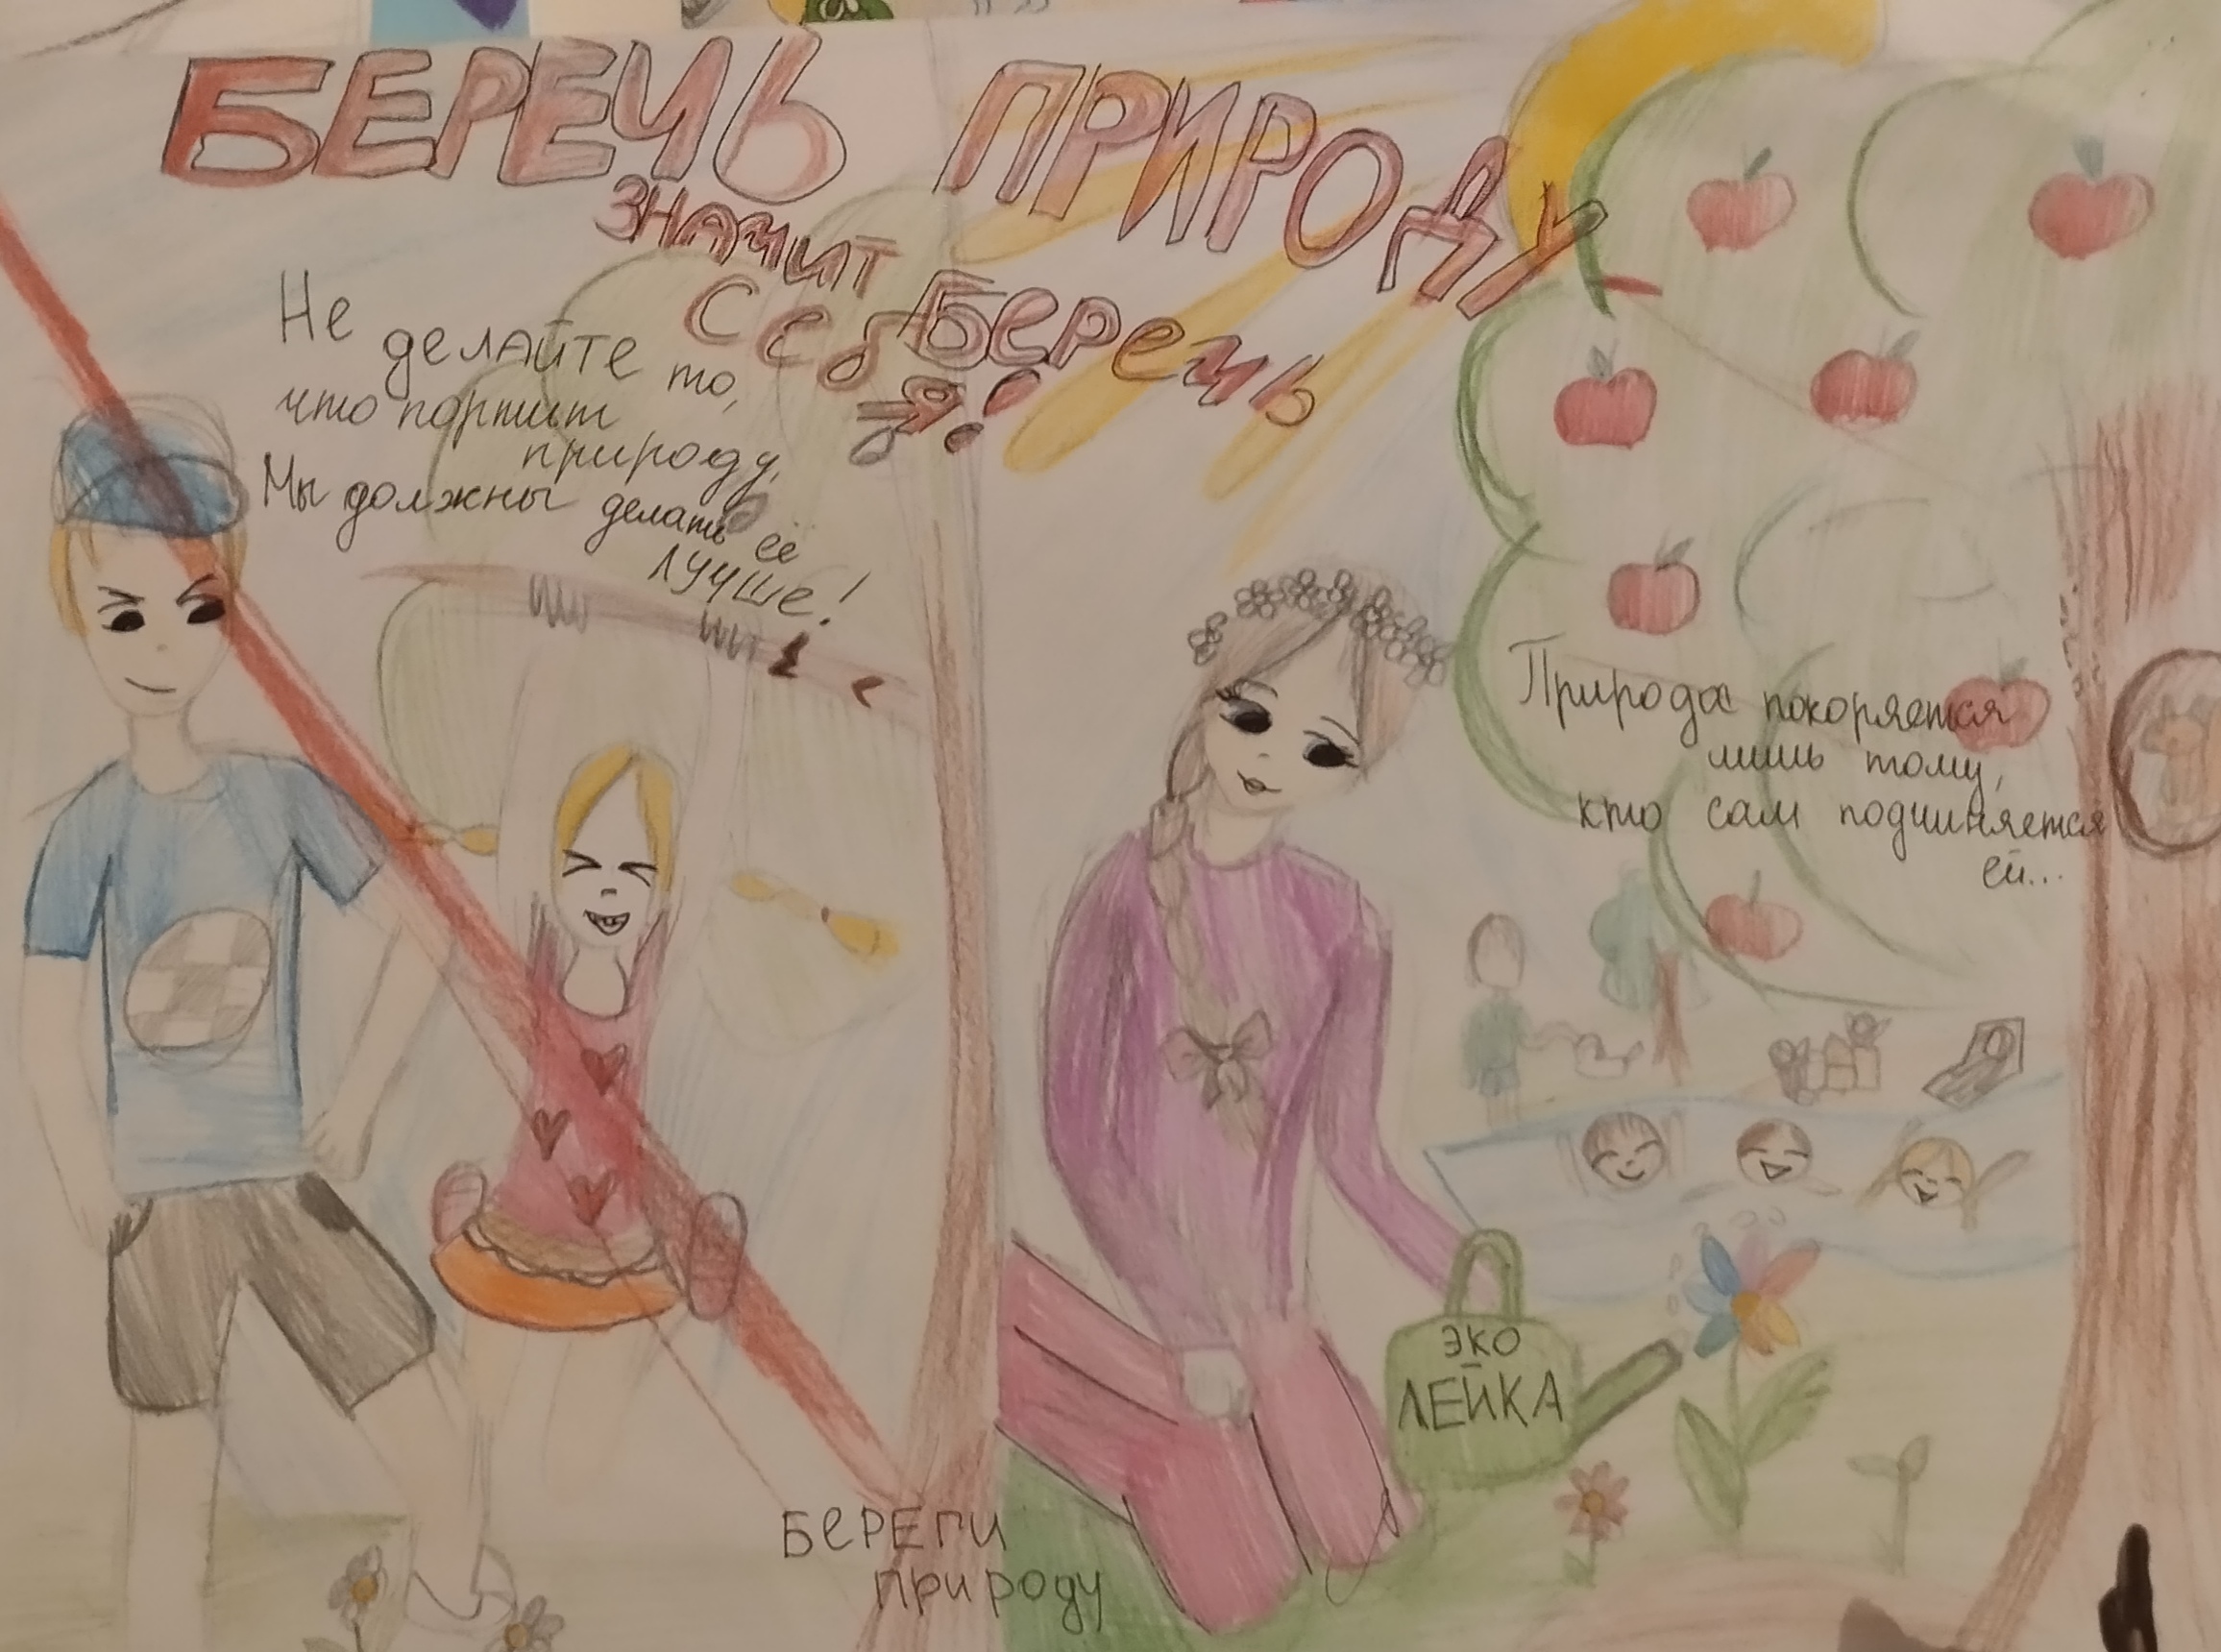 БЕРЕЧЬ ПРИРОДУ
ЗНАЧИТ
СЕБЯ БЕРЕЧЬ!
Не делайте то,
что портит
природу,
Мы должны делать её
ЛУЧШЕ!
Природа покоряется
лишь тому,
кто сам подчиняется
ей...
ЭКО
ЛЕЙКА
БЕРЕГИ
природу